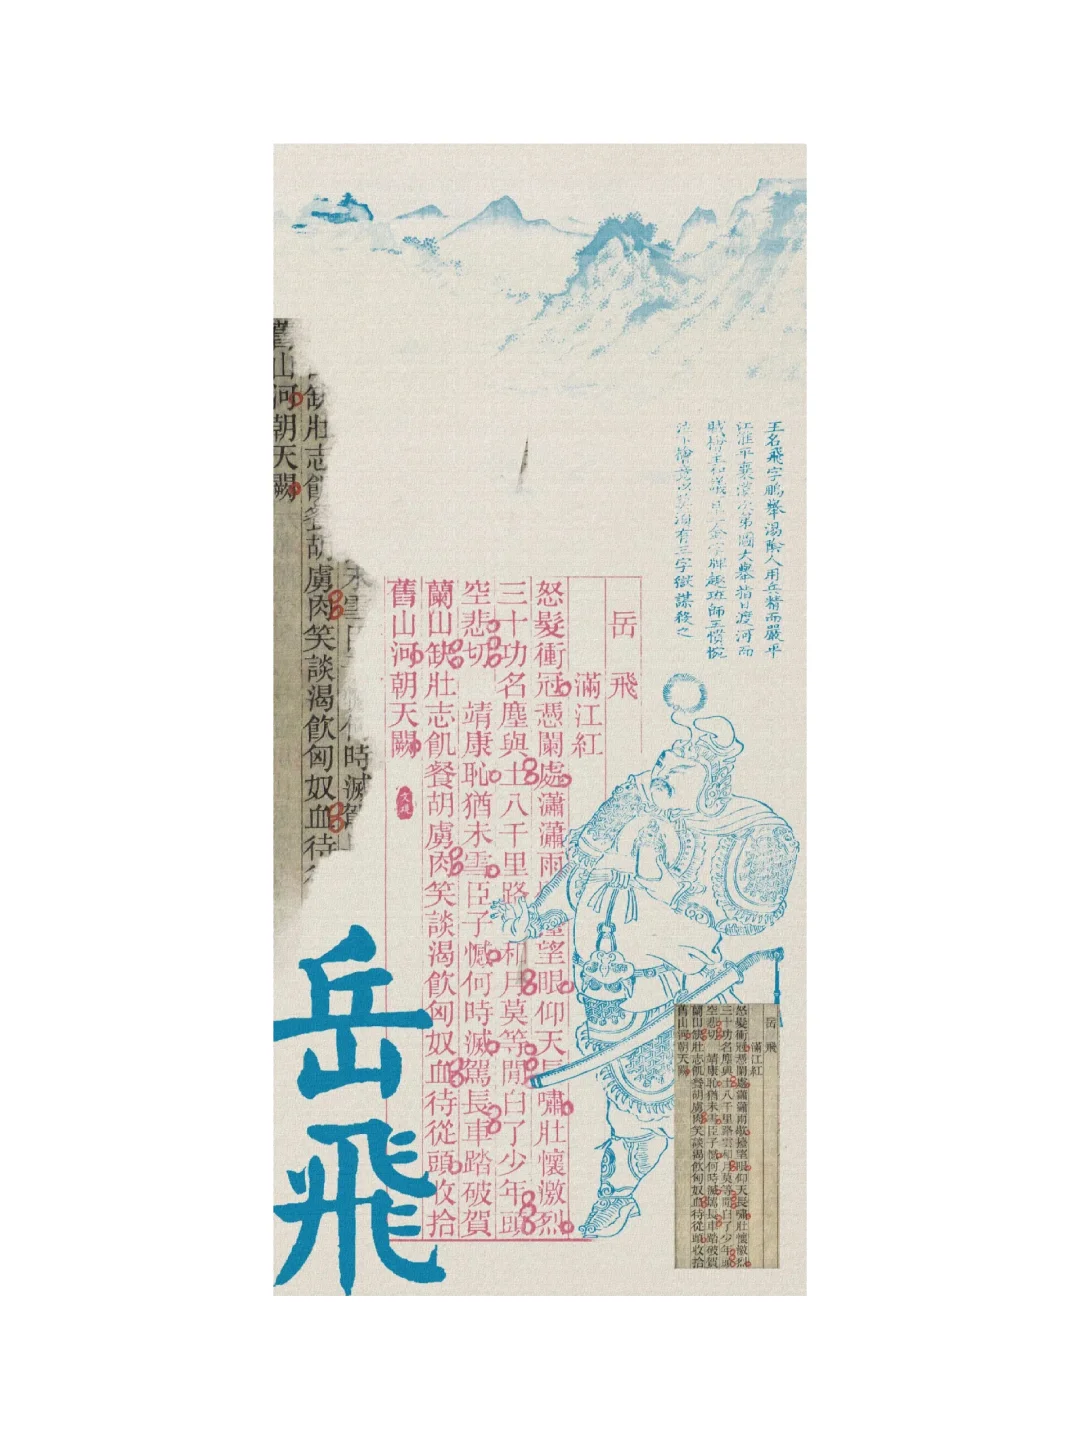 王名飛字鵬舉湯陰人用兵精而嚴平
江淮平襄漢次第圖大舉指日渡河而
賊檜主和議金字牌趣班師王憤惋
泣下檜竟以莫須有三字獄謀殺之
岳飛
滿江紅
怒髮衝冠憑闌處瀟瀟雨望眼仰天長嘯壯懷激烈
三十功名塵與土八千里路和月莫等閒白了少年頭
空悲切 靖康恥猶未雪臣子憾何時滅駕長車踏破賀
蘭山缺壯志飢餐胡虜肉笑談渴飲匈奴血待從頭收拾
舊山河朝天闕
未雪何時滅駕
缺壯志飢餐胡虜肉笑談渴飲匈奴血待
山河朝天闕
岳飛
岳飛
滿江紅
怒髮衝冠憑闌處瀟瀟雨歇擡望眼仰天長嘯壯懷激烈
三十功名塵與土八千里路雲和月莫等閒白了少年頭
空悲切 靖康恥猶未雪臣子憾何時滅駕長車踏破賀
蘭山缺壯志飢餐胡虜肉笑談渴飲匈奴血待從頭收拾
舊山河朝天闕